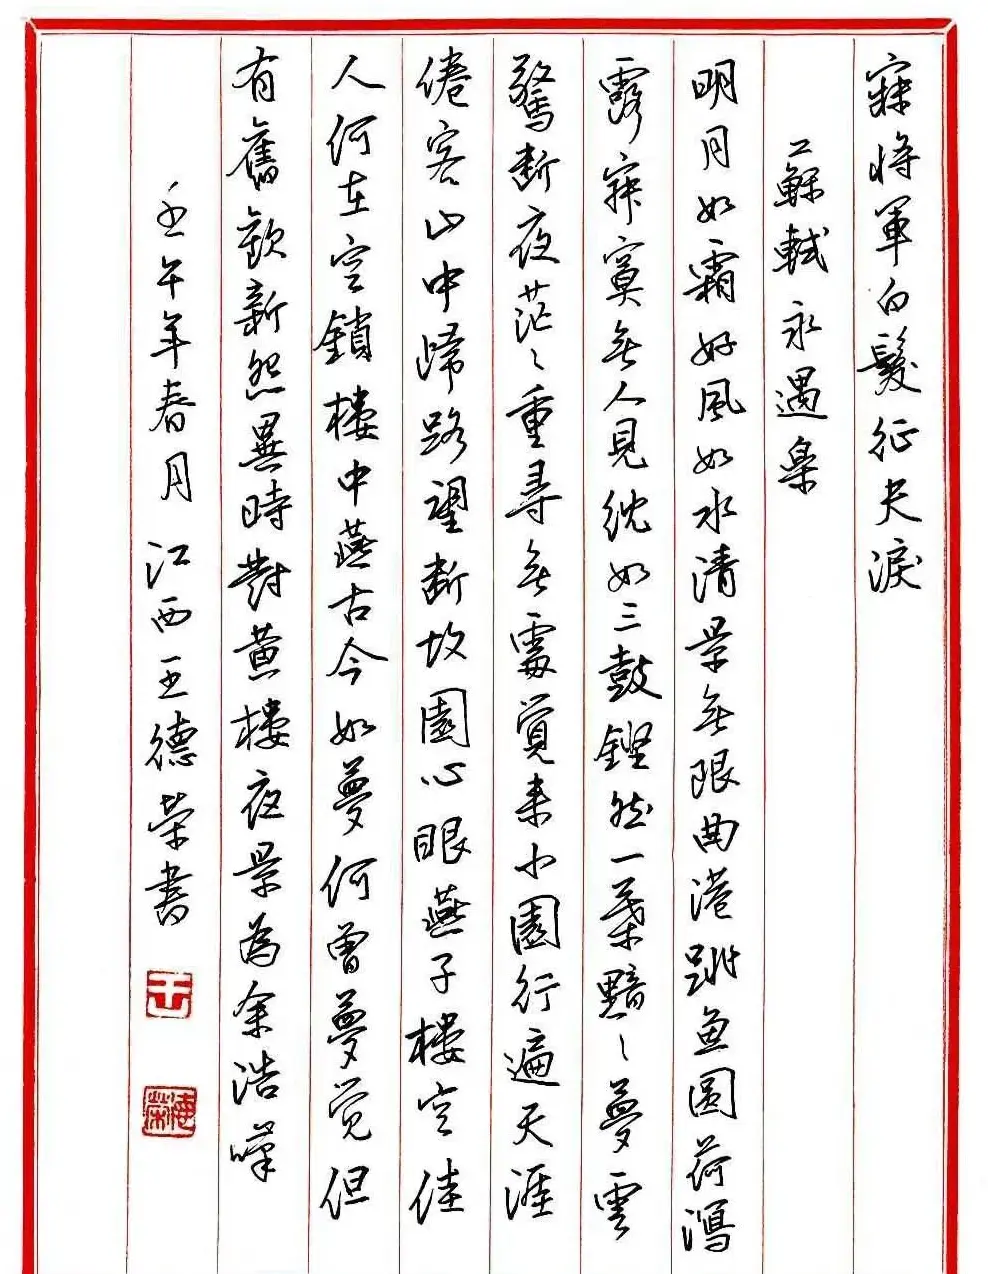 寐將軍白髮征夫淚
蘇軾永遇樂
明月如霜好風如水清景無限曲港跳魚圓荷瀉
露寂寞無人見紞如三鼓鏗然一葉黯〻夢雲
驚斷夜茫〻重尋無處覺來小園行遍天涯
倦客山中歸路望斷故園心眼燕子樓空佳
人何在空鎖樓中燕古今如夢何曾夢覺但
有舊歡新怨異時對黃樓夜景為余浩嘆
壬午年春月江西王德榮書
王
德榮